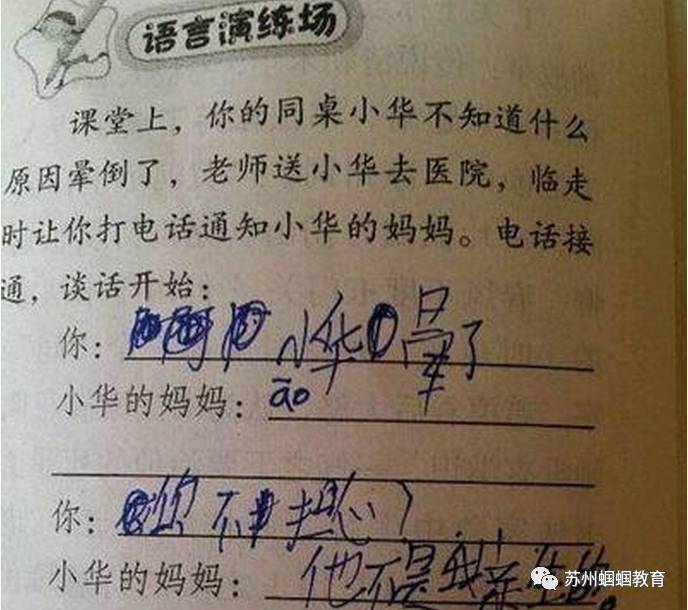 语言演练场
课堂上，你的同桌小华不知道什么
原因晕倒了，老师送小华去医院，临走
时让你打电话通知小华的妈妈。电话接
通，谈话开始：
你：小华晕了
小华的妈妈：āo
你：你不担心？
小华的妈妈：他不是我亲生的。
苏州蝈蝈教育